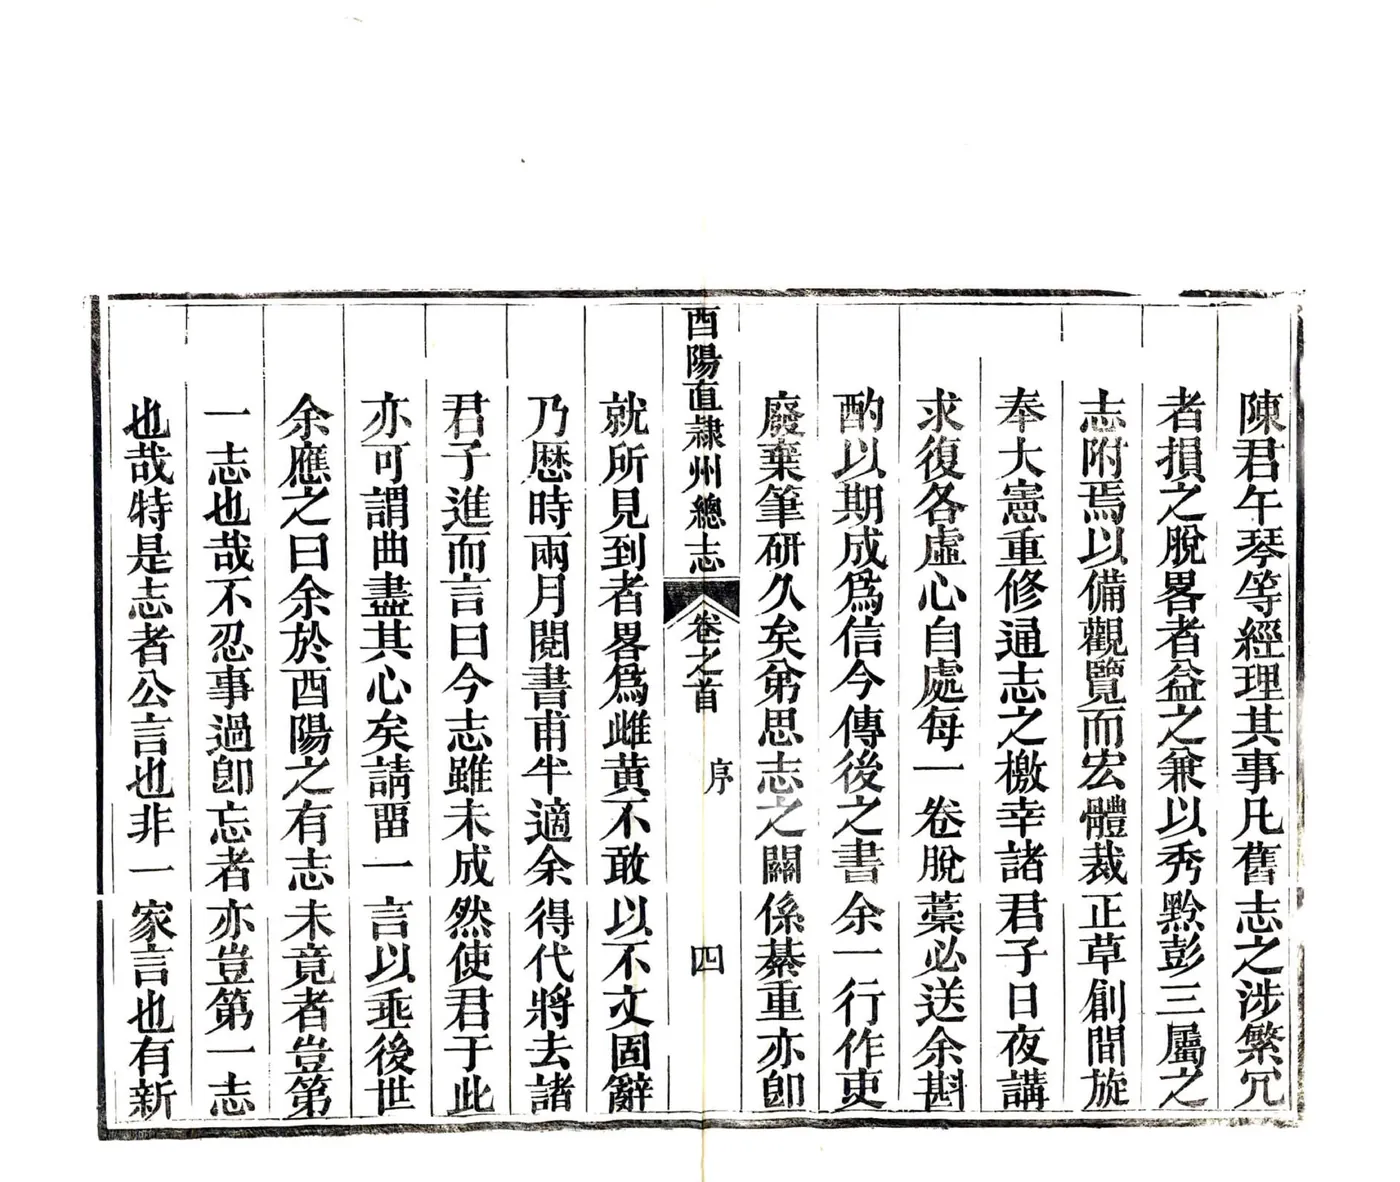 陳君午琴等經理其事凡舊志之涉繁冗
者損之脫畧者益之兼以秀黔彭三屬之
志附焉以備觀覽而宏體裁正草創間旋
奉大憲重修通志之檄幸諸君子日夜講
求復各虛心自處每一卷脫藁必送余斟
酌以期成爲信今傳後之書余一行作吏
廢棄筆研久矣弟思志之關係綦重亦卽
酉陽直隸州總志 卷之首 序 四
就所見到者畧爲雌黃不敢以不文固辭
乃歷時兩月閱書甫半適余得代將去諸
君子進而言曰今志雖未成然使君于此
亦可謂曲盡其心矣請畱一言以垂後世
余應之曰余於酉陽之有志未竟者豈第
一志也哉不忍事過卽忘者亦豈第一志
也哉特是志者公言也非一家言也有新